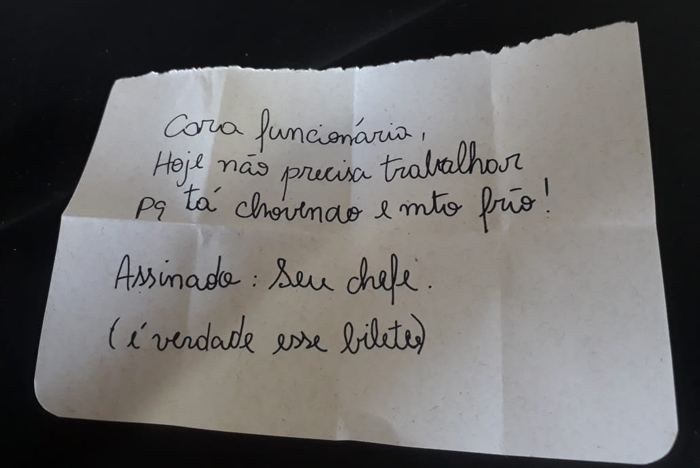 Cara funcionária,
Hoje não precisa trabalhar
pq tá chovendo e mto frio!
Assinado: Seu chefe.
(é verdade esse bilete)